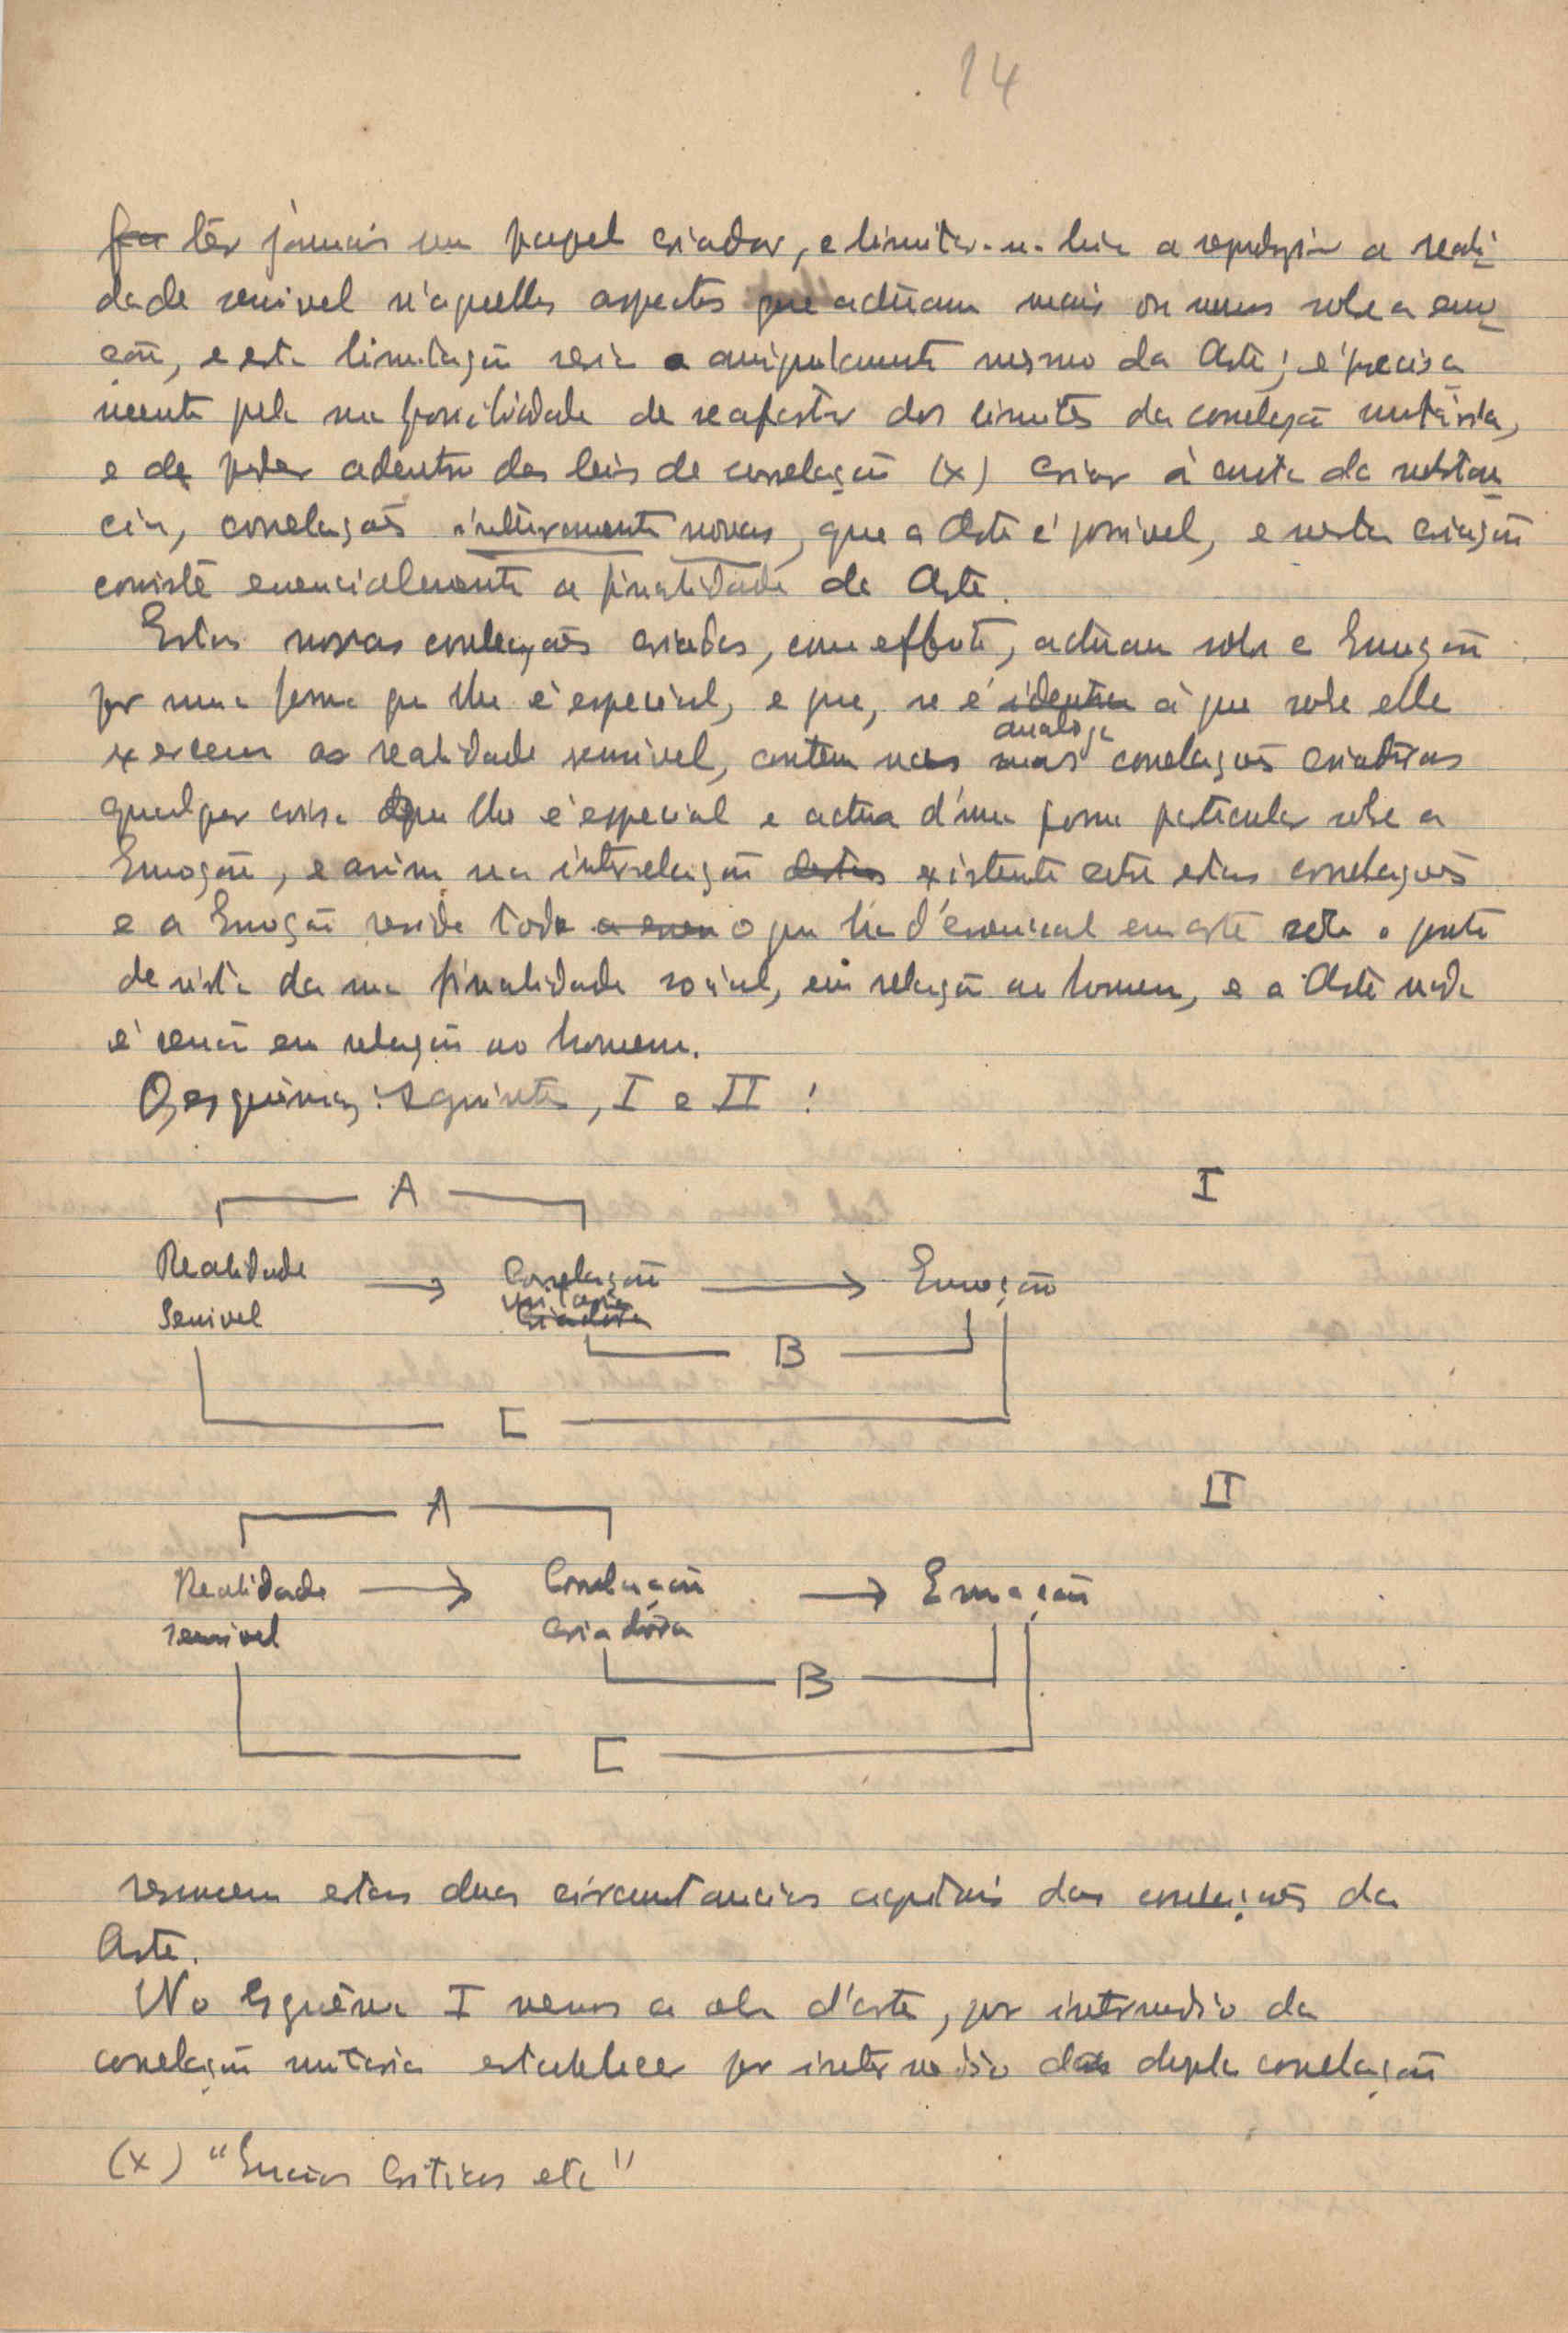 14
ter jamais um papel criador, e limitar-se-hia a reproduzir a reali
dade sensivel n'aquelles aspectos que actuam mais ou menos sobre a emo
ção, e esta limitação seria o mesmo da Arte; é precisa
mente pela sua possibilidade de se afastar dos limites da correlação unitária,
e de poder adentro das leis de correlação (x) criar à custa da substan
cia, correlações inteiramente novas, que a Arte é possivel, e nesta criação
consiste essencialmente a finalidade da Arte.
Estas novas correlações criadas, com effeito, actuam sobre a Emoção
por uma forma que lhe é especial, e que, se é identica à que sobre ella
analoga
exercem a realidade sensivel, contem nas suas correlações criadoras
qualquer coisa que lhe é especial e actua d'uma forma particular sobre a
Emoção, e assim na interrelação destas existente entre estas correlações
e a Emoção reside todo o que ha d'essencial em arte sob o ponto
de vista da sua finalidade social, em relação ao homem, e a Arte nada
é senão em relação ao homem.
Os esquêmas seguintes, I e II :
A I
Realidade → Correlação → Emoção
Sensivel unitaria
criadora
B
C
A II
Realidade → Correlação → Emoção
sensivel criadôra
B
C
resumem estas duas circumstancias capitais das correlações da
Arte.
No Esquêma I vemos a obra d'arte, por intermedio da
correlação unitaria estabelecer por intermedio da dupla correlação
(x) "Ensaios Criticos etc"